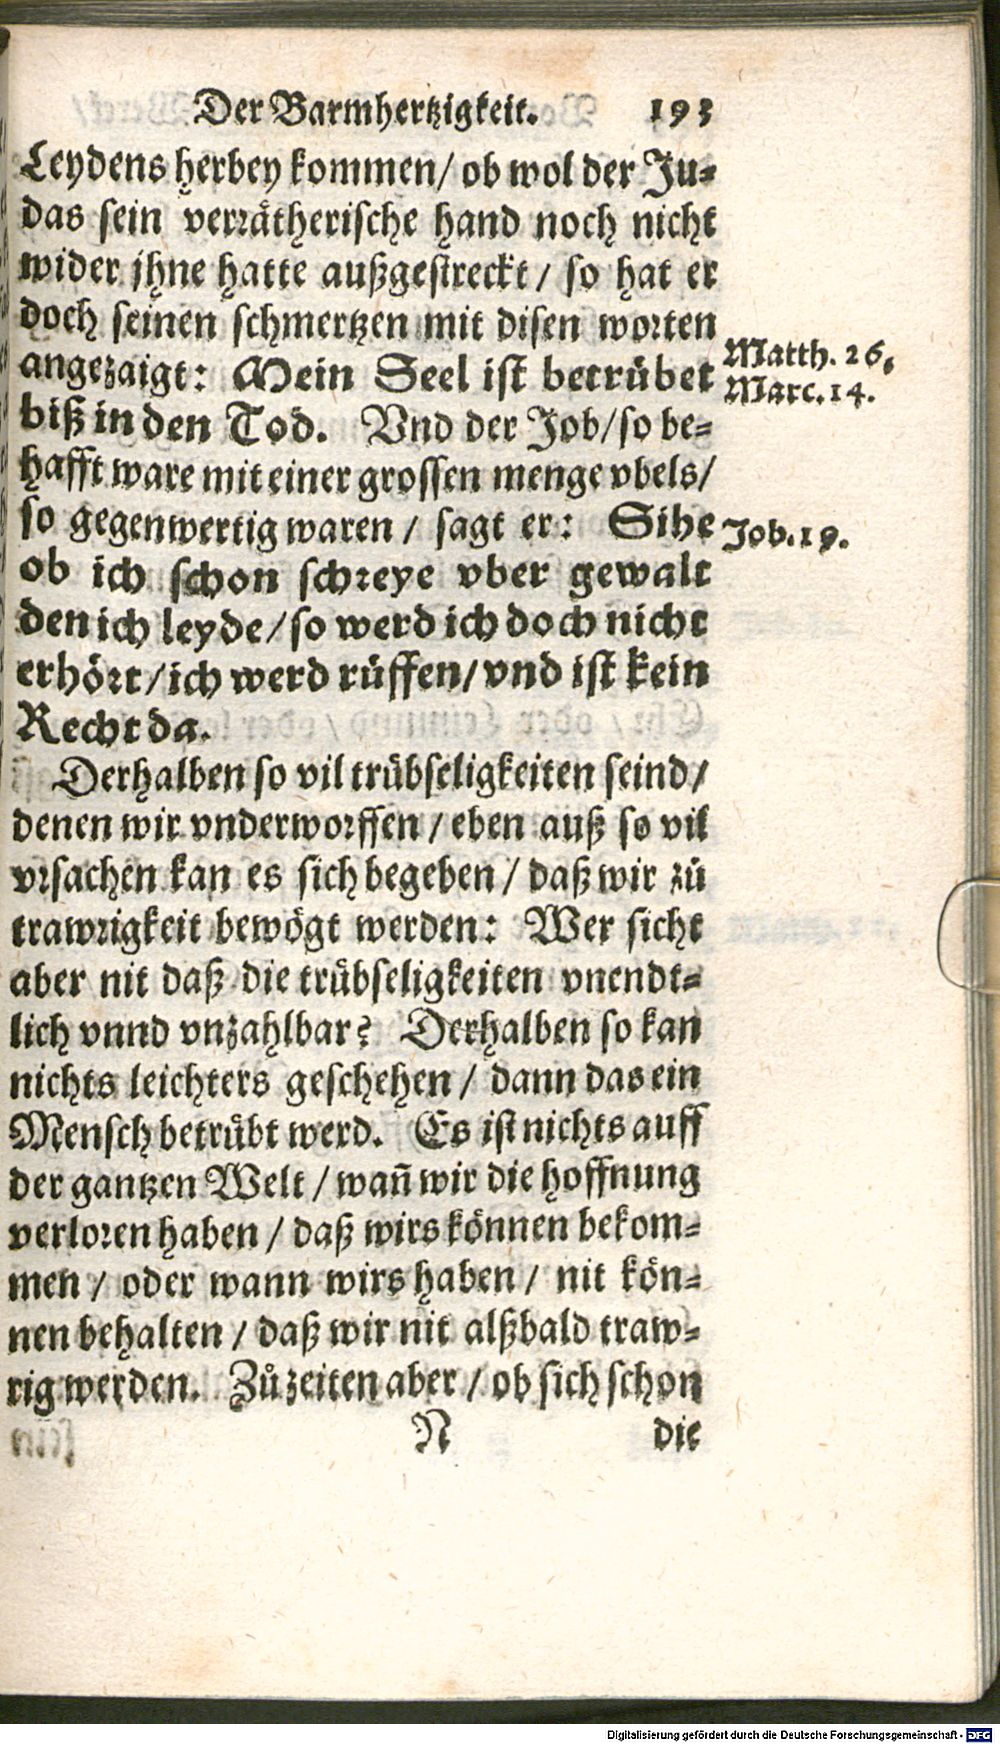 Der Barmhertzigkeit. 193
Leydens herbey kommen/ ob wol der Ju⸗
das sein verrätherische hand noch nicht
wider jhne hatte außgestreckt/ so hat er
doch seinen schmertzen mit disen worten
angezaigt: Mein Seel ist betrübet
Matth. 26.
Marc. 14.
biß in den Tod. Vnd der Job/ so be⸗
hafft ware mit einer grossen menge vbels/
so gegenwertig waren/ sagt er: Sihe
Job. 19.
ob ich schon schreye vber gewalt
den ich leyde/ so werd ich doch nicht
erhört/ ich werd rüffen/ vnd ist kein
Recht da.
Derhalben so vil trübseligkeiten seind/
denen wir vnderworffen/ eben auß so vil
vrsachen kan es sich begeben/ daß wir zů
trawrigkeit bewögt werden: Wer sicht
aber nit daß die trübseligkeiten vnendt⸗
lich vnnd vnzahlbar? Derhalben so kan
nichts leichters geschehen/ dann das ein
Mensch betrübt werd. Es ist nichts auff
der gantzen Welt/ wañ wir die hoffnung
verloren haben/ daß wirs können bekom⸗
men/ oder wann wirs haben/ nit kön⸗
nen behalten/ daß wir nit alßbald traw⸗
rig werden. Zů zeiten aber/ ob sich schon
N die
Digitalisierung gefördert durch die Deutsche Forschungsgemeinschaft - DFG